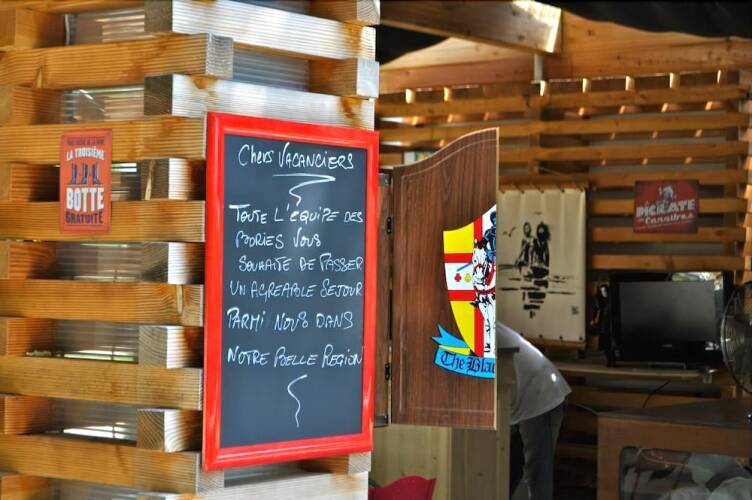 LA TROISIÈME
BOTTE
GRATUITE
Chers VACANCIERS
TOUTE L'ÉQUIPE DES
MORIES VOUS
SOUHAITE DE PASSER
UN AGREABLE SEJOUR
PARMI NOUS DANS
NOTRE BELLE REGION
The Bla
PICRATE
des Caraïbes